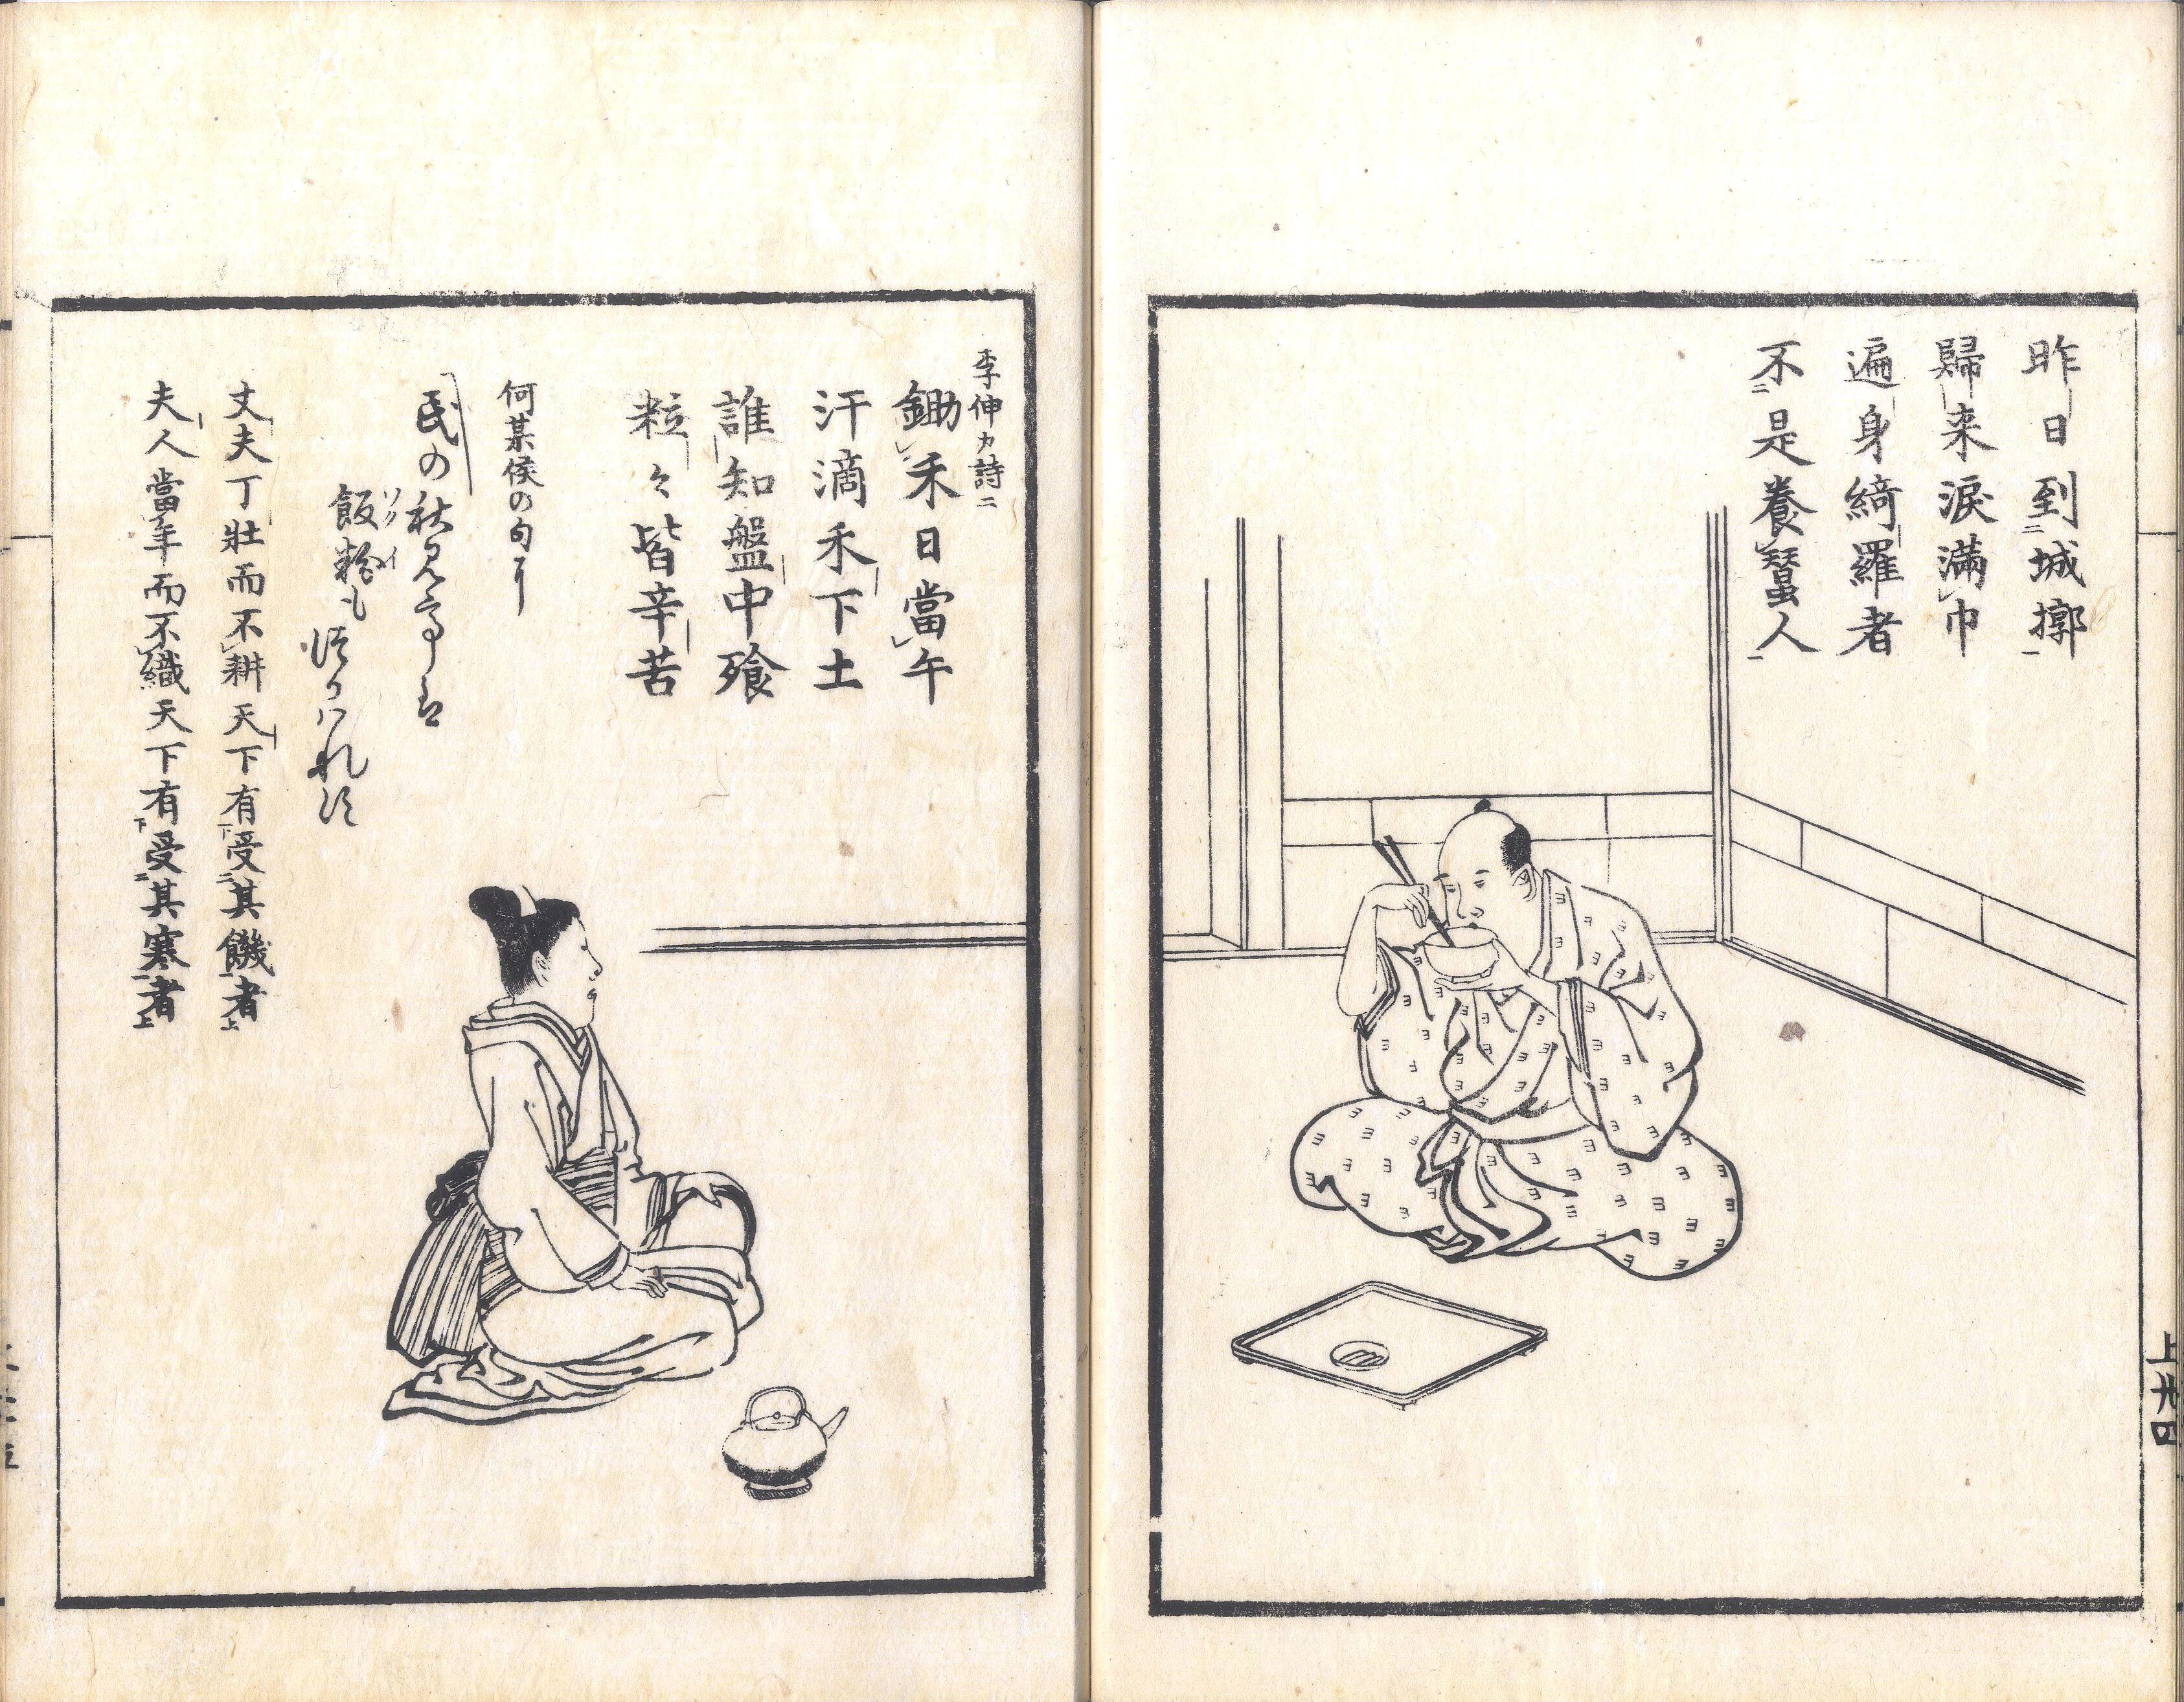 昨日到城墎
歸来涙滿巾
遍身綺羅者
不是養蝅人
上 廿四
李伸カ詩ニ
鋤禾日當午
汗滴禾下土
誰知盤中飱
粒々皆辛苦
何某侯の句
民の秋
飯粉も
ソクイ
丈夫丁壯而不耕天下有受其饑者
夫人當年而不織天下有受其寒者